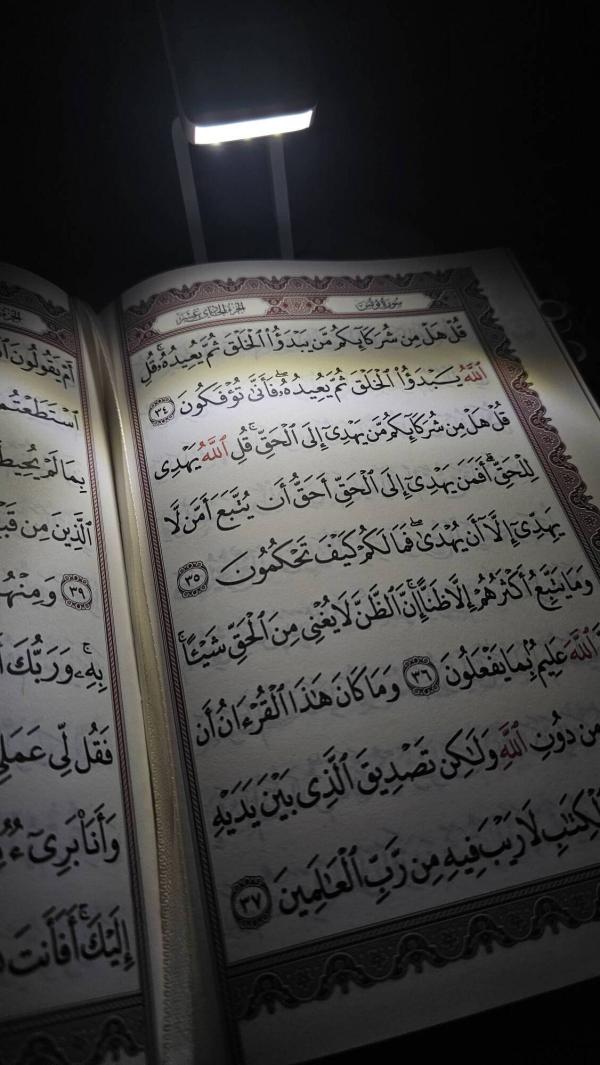 سورة يونس
الجزء الحادي عشر
قُلْ هَلْ مِن شُرَكَآئِكُم مَّن يَبْدَؤُا۟ ٱلْخَلْقَ ثُمَّ يُعِيدُهُۥ ۚ قُلِ
ٱللَّهُ يَبْدَؤُا۟ ٱلْخَلْقَ ثُمَّ يُعِيدُهُۥ ۖ فَأَنَّىٰ تُؤْفَكُونَ ٣٤
قُلْ هَلْ مِن شُرَكَآئِكُم مَّن يَهْدِىٓ إِلَى ٱلْحَقِّ ۚ قُلِ ٱللَّهُ يَهْدِى
لِلْحَقِّ ۗ أَفَمَن يَهْدِىٓ إِلَى ٱلْحَقِّ أَحَقُّ أَن يُتَّبَعَ أَمَّن لَّا
يَهِدِّىٓ إِلَّآ أَن يُهْدَىٰ ۖ فَمَا لَكُمْ كَيْفَ تَحْكُمُونَ ٣٥
وَمَا يَتَّبِعُ أَكْثَرُهُمْ إِلَّا ظَنًّا ۚ إِنَّ ٱلظَّنَّ لَا يُغْنِى مِنَ ٱلْحَقِّ شَيْـًٔا ۚ
ٱللَّهَ عَلِيمٌۢ بِمَا يَفْعَلُونَ ٣٦ وَمَا كَانَ هَـٰذَا ٱلْقُرْءَانُ أَن
مِن دُونِ ٱللَّهِ وَلَـٰكِن تَصْدِيقَ ٱلَّذِى بَيْنَ يَدَيْهِ
ٱلْكِتَـٰبِ لَا رَيْبَ فِيهِ مِن رَّبِّ ٱلْعَـٰلَمِينَ ٣٧
أَمْ يَقُولُونَ
ٱسْتَطَعْتُم
بِمَا لَمْ يُحِيطُ
ٱلَّذِينَ مِن قَبْ
٣٩ وَمِنْهُ
بِهِۦ ۚ وَرَبُّكَ أَ
فَقُل لِّى عَمَلِى
وَأَنَا۠ بَرِىٓءٌ
إِلَيْكَ ۚ أَفَأَنتَ